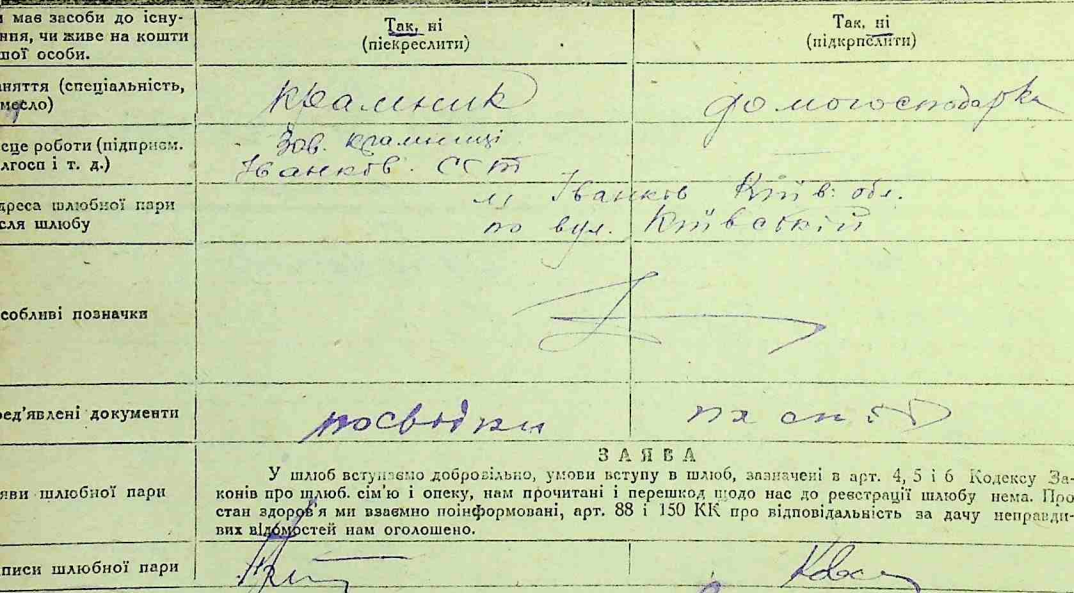 и має засоби до існу-
ння, чи живе на кошти
шої особи.
Так, ні
(піекреслити)
Так, ні
(підкрпслити)
няття (спеціальність,
месло)
крамник
домогосподарка
сце роботи (підприєм.
лгосп і т. д.)
Зав. крамниці
Іванков. ССТ
дреса шлюбної пари
сля шлюбу
м Іванков Київ. обл.
по вул. Київській
собливі позначки
ред'явлені документи
посвідки
ЗАЯВА
яви шлюбної пари
У шлюб вступаємо добровільно, умови вступу в шлюб, зазначені в арт. 4, 5 і 6 Кодексу За-
конів про шлюб. сім'ю і опеку, нам прочитані і перешкод щодо нас до реєстрації шлюбу нема. Про
стан здоров'я ми взаємно поінформовані, арт. 88 і 150 КК про відповідальність за дачу неправди-
вих відомостей нам оголошено.
писи шлюбної пари